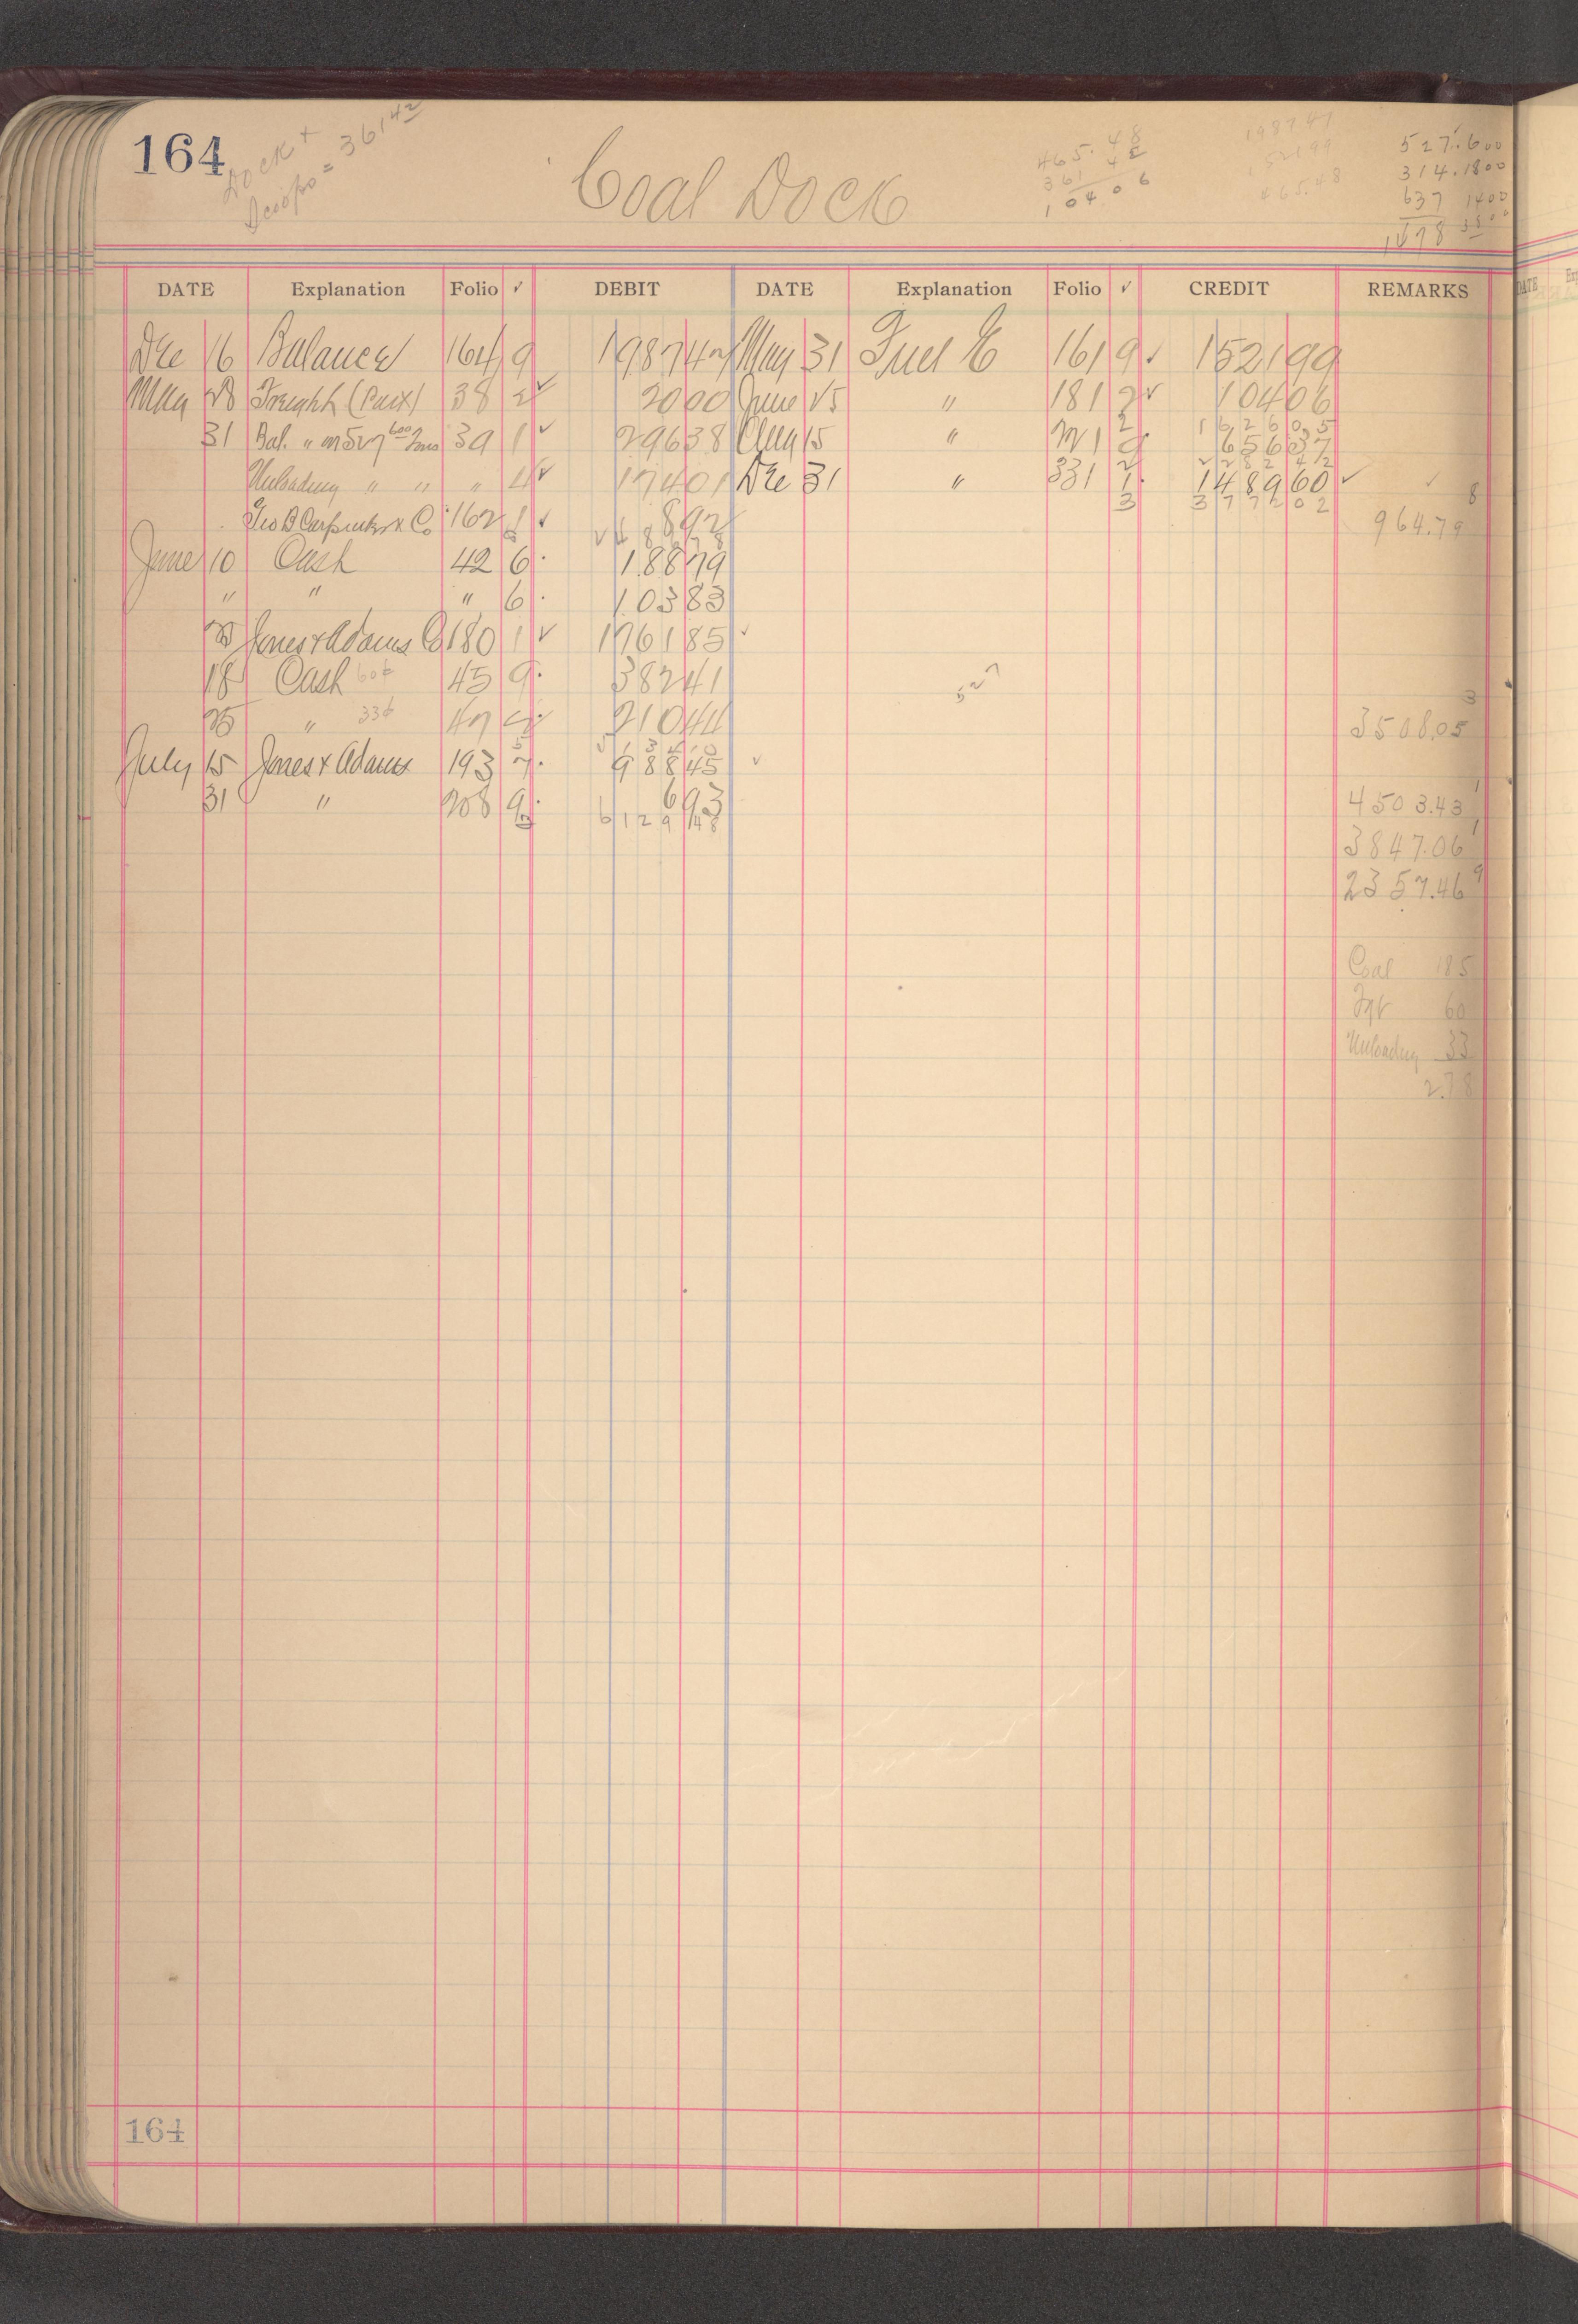 164
Dock +
= 361 42
Coal Dock
465.48
361 42
104 06
1987 47
1521 99
465.48
527.600
314.1800
637 1400
1478 3800
DATE Explanation Folio ✓ DEBIT DATE Explanation Folio ✓ CREDIT REMARKS
Dec 16 Balance 164 9 1987 47 May 31 Fuel % 161 9 1521 99
May 28 Freight (Part) 38 2 ✓ 20 00 June 25 " 181 2 ✓ 104 06
2 1626 05
31 Bal. " on 527 600 Tons 39 1 ✓ 296 38 Aug 15 " 221 9 656 37
2 2282 42
Unloading " " " 4 ✓ 174 01 Dec 31 " 331 1 1489 60 ✓ ✓
3 3772 02
8
Geo B Carpenter & Co 162 1 ✓ 8 92 964.79
June 10 Cash 42 6 188 79
" " " 6 103 83
Jones & Adams Co 180 1 ✓ 1761 85 ✓
18 Cash 60¢ 45 9 382 41
527
25 " 33¢ 47 210 44
3
3508.05
July 15 Jones & Adams 193 7 988 45 ✓
31 " 208 9 6 93
6129 48
1
4503.43
1
3847.06
9
2357.46
Coal 185
Frt 60
Unloading 33
2.78
164
DATE